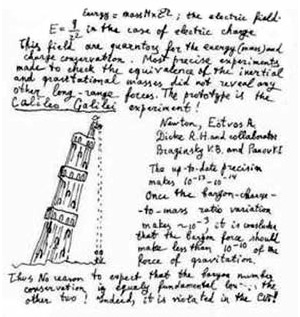 Energy = mass M×c²; the electric field
E = g/r² in the case of electric charge
This field are guarentors for the energy (mass) and
charge conservation. Most precise experiments
made to check the equivalence of the inertial
and gravitational masses did not reveal any
other long-range forces. The prototype is the
Galileo Galilei experiment!
Newton, Eotvos R,
Dicke R.H. and collaborator
Braginsky V.B. and Panov V.I
The up-to-date precision
makes 10⁻¹³-10⁻¹⁴
Once the baryon-charge-
-to-mass ratio variation
makes ~10⁻³ it is conclude
that the baryon force should
make less than 10⁻¹⁰ of the
force of gravitation.
Thus No reason to expect that the baryon number
conservation is equally fundamental
other two! Indeed, it is violated in the